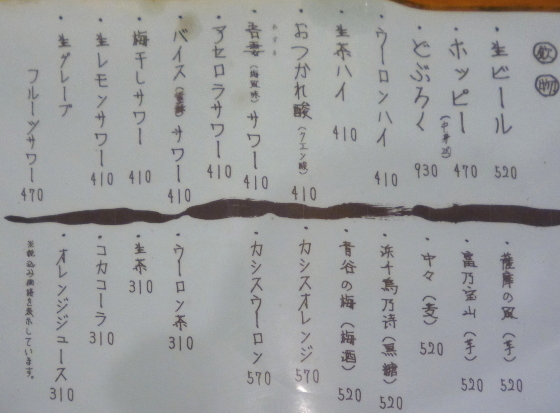 飲物
・生ビール 520
・ホッピー(中身込) 470
・どぶろく 930
・ウーロンハイ 410
・生茶ハイ 410
・おつかれ酸(クエン酸) 410
・吾妻(梅風味)サワー 410
・アセロラサワー 410
・バイス サワー 410
・梅干しサワー 410
・生レモンサワー 410
・生グレープフルーツサワー 470
・薩摩の風(芋) 520
・富乃宝山(芋) 520
・中々(麦) 520
・浜千鳥乃詩(黒糖) 520
・青谷の梅(梅酒) 520
・カシスオレンジ 570
・カシスウーロン 570
・ウーロン茶 310
・生茶 310
・コカコーラ 310
・オレンジジュース 310
※税込み価格を表示しています。